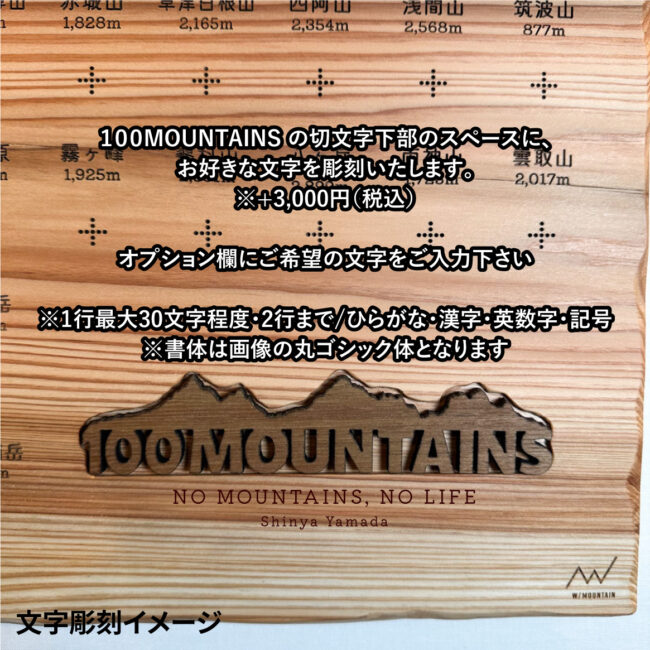 赤城山
草津白根山
四阿山
浅間山
筑波山
1,828m
2,165m
2,354m
2,568m
877m
100MOUNTAINS の切文字下部のスペースに、
お好きな文字を彫刻いたします。
※+3,000円(税込)
霧ヶ峰
雲取山
1,925m
2,017m
オプション欄にご希望の文字をご入力下さい
※1行最大30文字程度・2行まで/ひらがな・漢字・英数字・記号
※書体は画像の丸ゴシック体となります
岳
岳
100MOUNTAINS
NO MOUNTAINS, NO LIFE
Shinya Yamada
W/MOUNTAIN
文字彫刻イメージ